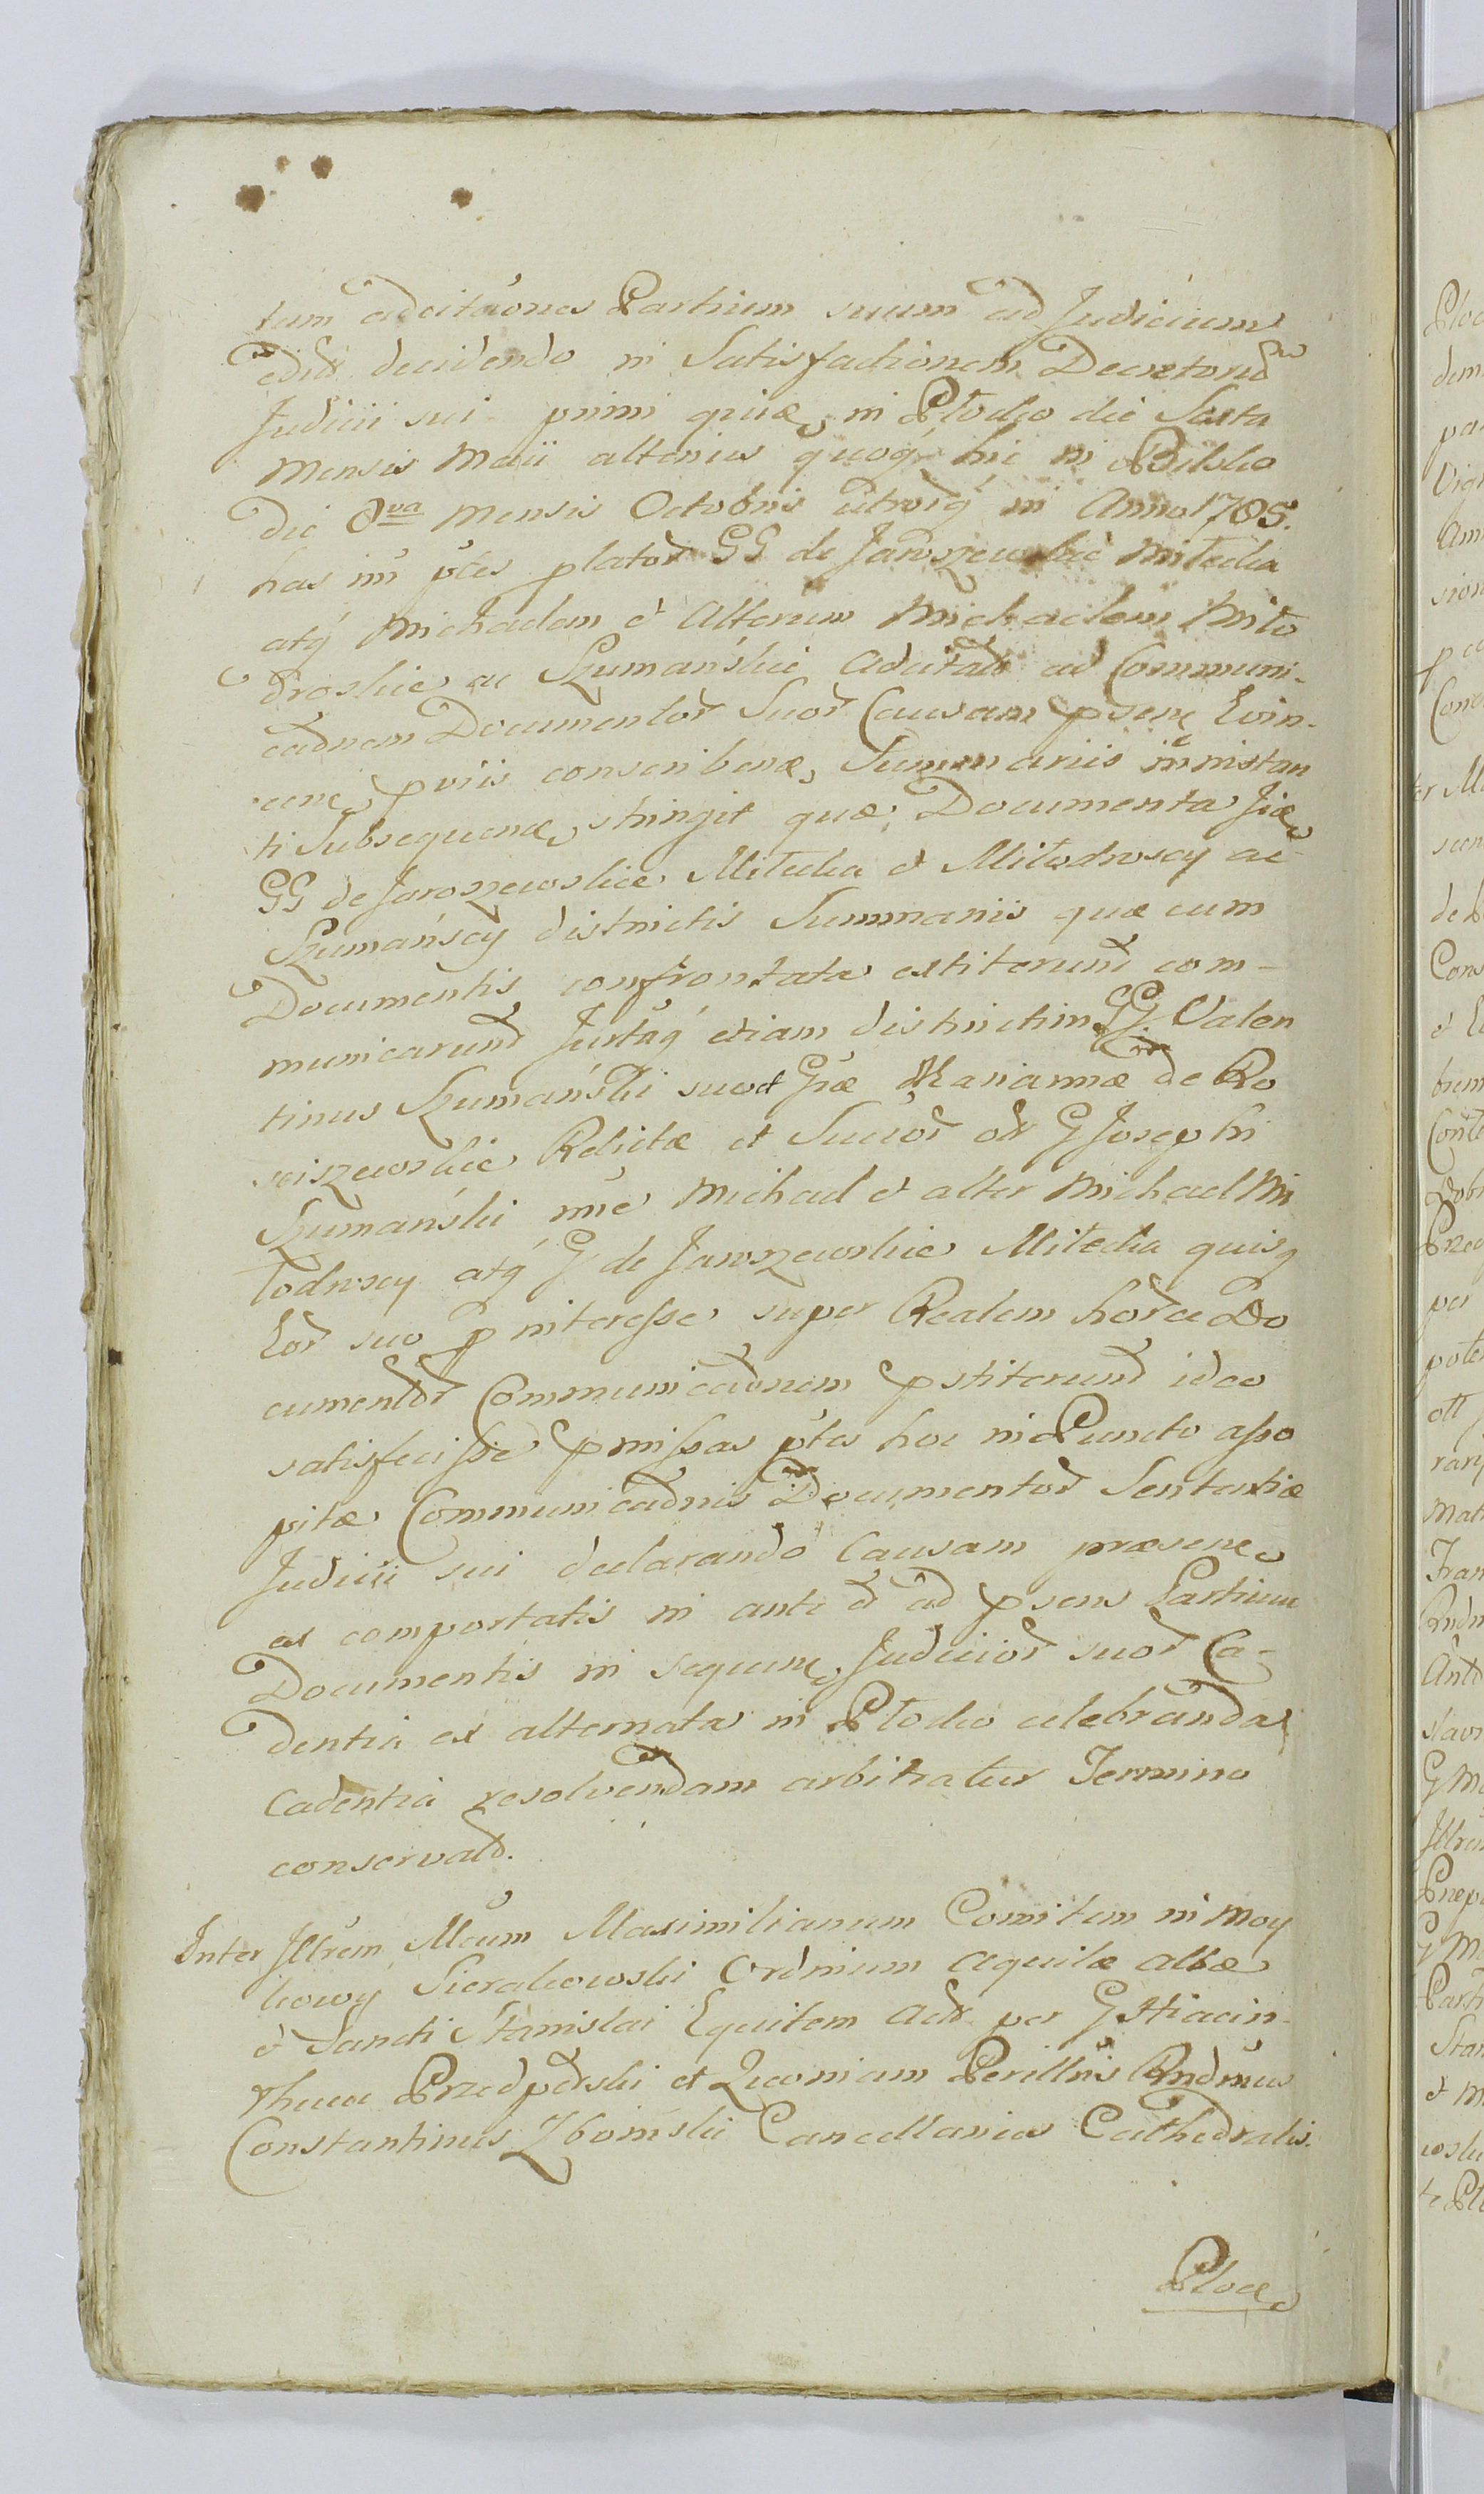 tum adcitaōnes Partium suum ad Judicium
edit decidendo in Satisfactionem Decretord
Judicii sui primi quidē in Płocko die Sexta
Mensis Maii alterius quoq̃ hic in Bilsko
die 8va Mensis Octobris utroiq̃ in Anno 1785.
has inr ptes plator GG de Jaroszewskie Mitecka
atq̃ Michaelem et Alterum Michaelem Miło
droskie ac Szumański Adcitatt ad Communi-
caōnem Documentor Suor Causam psene Evin-
cene pviis conscribenae Summariis in instan
ti Subsequenae stringit quae Documenta
GG de Jaroszewskie Mitecka et Miłodroscy ac
Szumańscy districtis Summariis quae cum
Documentis confrontata extiterunt com-
municarunt Jurtaq̃ etiam districtim GG Valen
tinus Szumański suo et Gsae Mariannae de Ro
sciszewskie Relictae et Succor ott G Josephi
Szumański nnē Michael et alter Michael Mi
łodroscy atq̃ G de Jaroszewskie Mitecka quisq
Eor suo p interesse super Realem horce Do
cumentor Communicaōnem pstiterunt ideo
satisfecisse pmissas ptes hoc in Puncto asso
pitae Communicaōnis Documentor Sententiae
Judicii sui declarando Causam praesene
ex comportatis in ante et ad psens Partium
Documentis in sequene Judicior suor Ca-
dentia ex alternata in Płocko celebranda
Cadentia resolvendam arbitratur Termino
conservato.
Inter Jllrem Mcum Maximilianum Comitem in Moy
kowy Sierakowski Ordinum Aquilae albae
et Sancti Stanislai Equitem Act per G Hiacin-
thum Przedpełski et Quoniam Perillris Rndmus
Constantinus Zboinski Cancellarius Cathedralis
Ploce